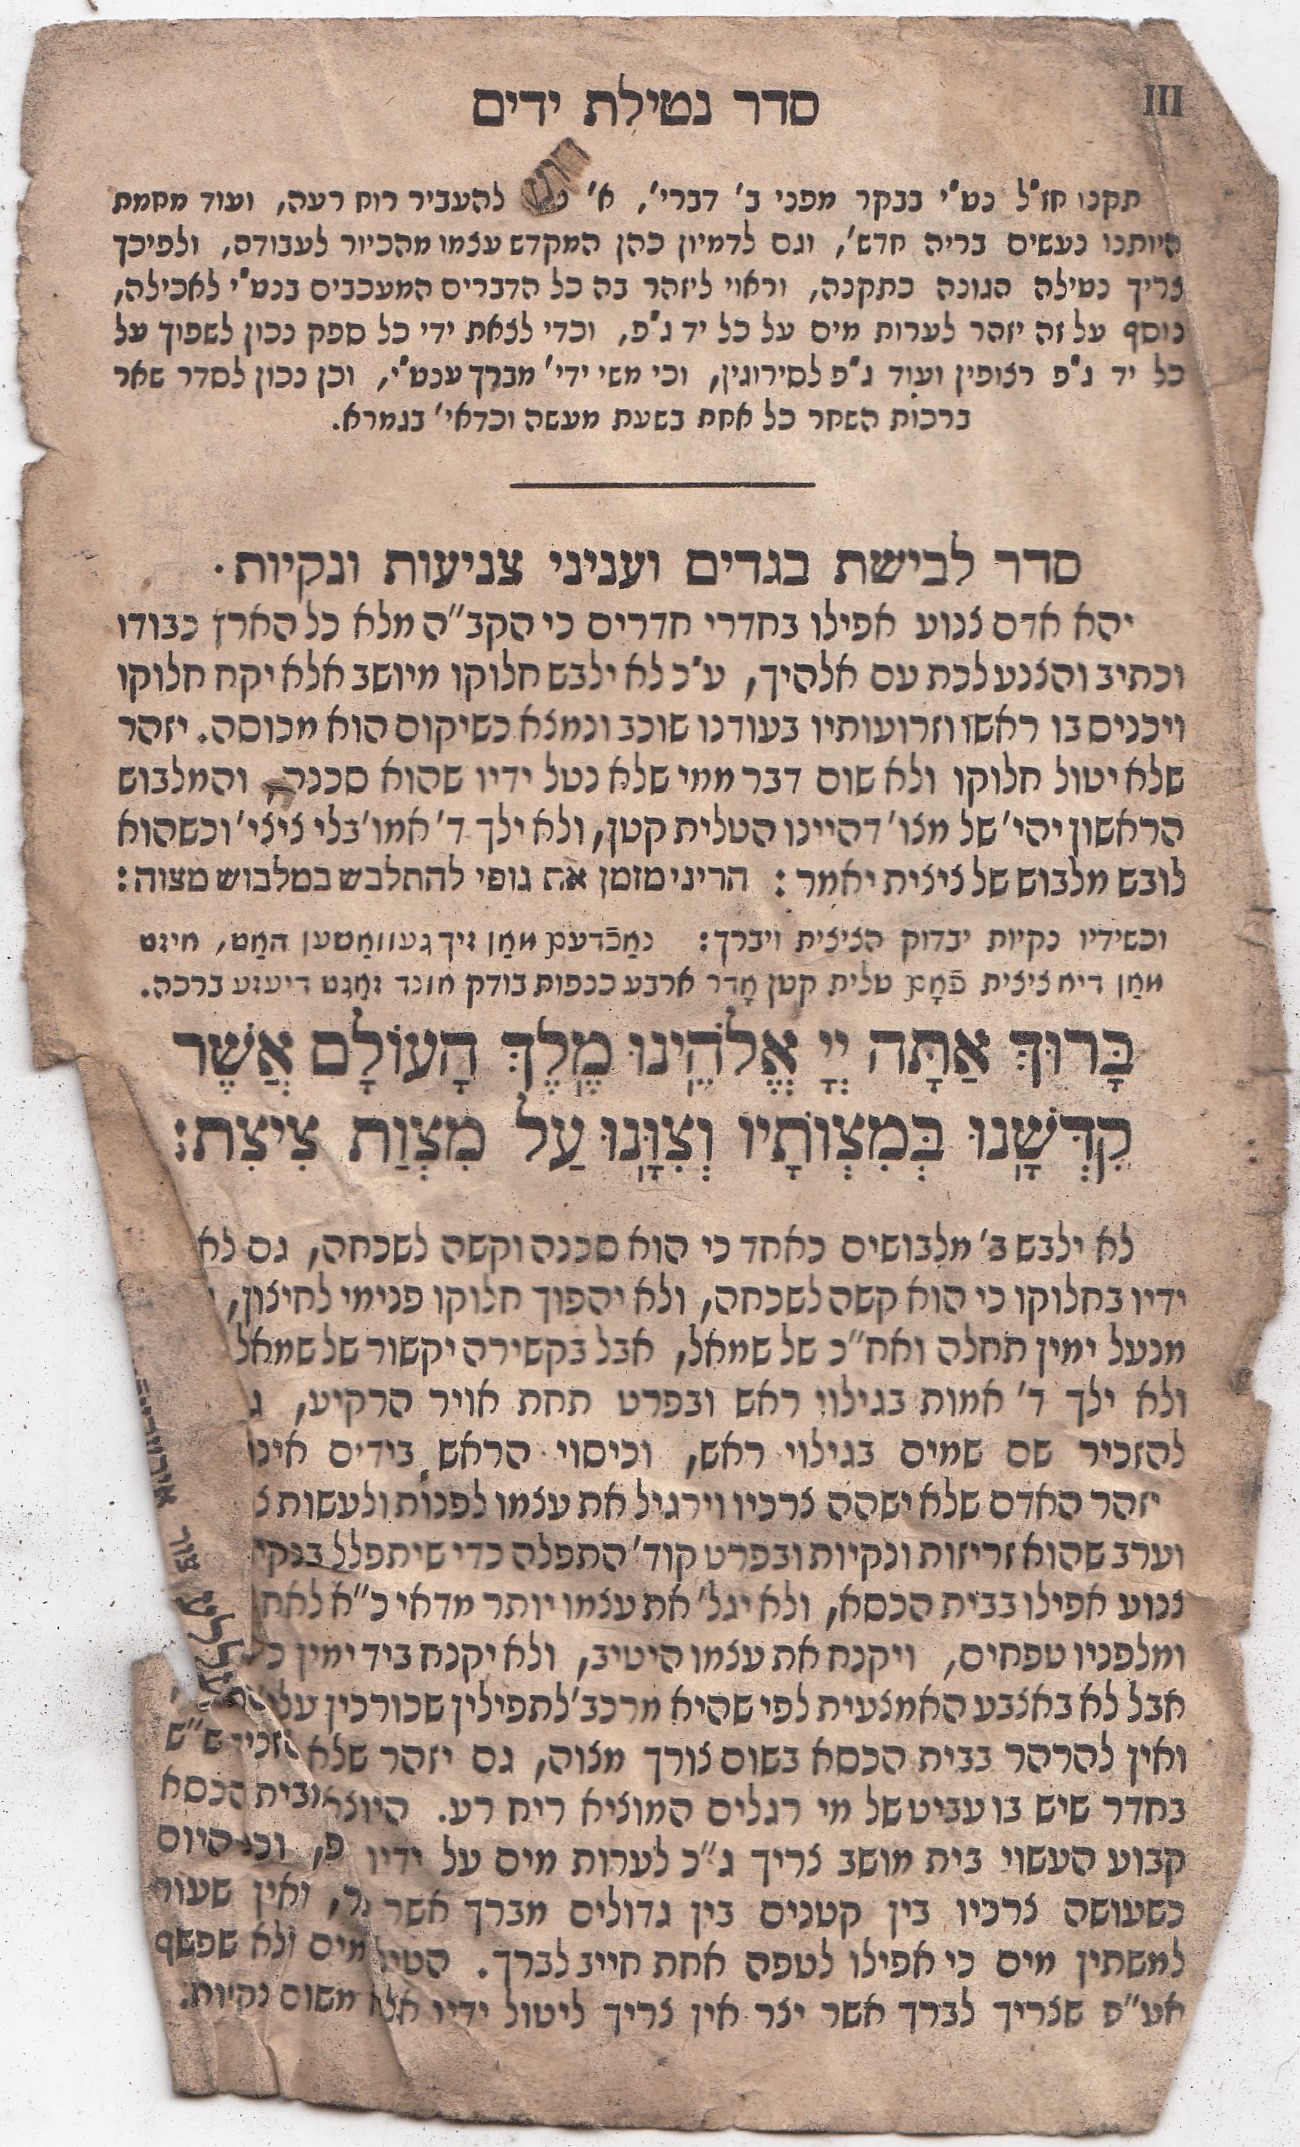 III
סדר נטילת ידים
תקנו חז"ל נט"י בבקר מפני ב' דברי', א' להעביר רוח רעה, ועוד מחמת
היותנו נעשים בריה חדש', וגם לדמיון כהן המקדש עצמו מהכיור לעבודה, ולפיכך
צריך נטילה הגונה כתקנה, וראוי ליזהר בה כל הדברים המעכבים בנט"י לאכילה,
נוסף על זה יזהר לערות מים על כל יד ג"פ, וכדי לצאת ידי כל ספק נכון לשפוך על
כל יד ג"פ רצופין ועוד ג"פ לסירוגין, וכי משי ידי' מברך ענט"י, וכן נכון לסדר שאר
ברכות השחר כל אחת בשעת מעשה וכדאי' בגמרא.
סדר לבישת בגדים ועניני צניעות ונקיות.
יהא אדם צנוע אפילו בחדרי חדרים כי הקב"ה מלא כל הארץ כבודו
וכתיב והצנע לכת עם אלהיך, ע"כ לא ילבש חלוקו מיושב אלא יקח חלוקו
ויכניס בו ראשו וזרועותיו בעודנו שוכב ונמצא כשיקום הוא מכוסה. יזהר
שלא יטול חלוקו ולא שום דבר ממי שלא נטל ידיו שהוא סכנה והמלבוש
הראשון יהי' של מצו' דהיינו הטלית קטן, ולא ילך ד' אמו' בלי ציצי' וכשהוא
לובש מלבוש של ציצית יאמר: הריני מזמן את גופי להתלבש במלבוש מצוה:
וכשידיו נקיות יבדוק הציצית ויברך: נאַכֿדעם מאַן זיך געוואַשען האַט, זיהט
מאַן דיא ציצית פֿאָם טלית קטן אָדר ארבע כנפות בודק אונד זאָגט דיעזע ברכה.
בָּרוּךְ אַתָּה יְיָ אֱלֹהֵינוּ מֶלֶךְ הָעוֹלָם אֲשֶׁר
קִדְּשָׁנוּ בְּמִצְוֹתָיו וְצִוָּנוּ עַל מִצְוַת צִיצִת:
לא ילבש ב' מלבושים כאחד כי הוא סכנה וקשה לשכחה, גם לא
ידיו בחלוקו כי הוא קשה לשכחה, ולא יהפוך חלוקו פנימי לחיצון,
מנעל ימין תחלה ואח"כ של שמאל, אבל בקשירה יקשור של שמאל
ולא ילך ד' אמות בגילוי ראש ובפרט תחת אויר הרקיע,
להזכיר שם שמים בגילוי ראש, וכיסוי הראש בידים אינו
יזהר האדם שלא ישהה צרכיו וירגיל את עצמו לפנות ולעשות
וערב שהוא זריזות ונקיות ובפרט קוד' התפלה כדי שיתפלל
צנוע אפילו בבית הכסא, ולא יגל' את עצמו יותר מדאי כ"א
ומלפניו טפחים, ויקנח את עצמו היטיב, ולא יקנח ביד ימין
אבל לא באצבע האמצעית לפי שהיא מרכב' לתפילין שכורכין
ואין להרהר בבית הכסא בשום צורך מצוה, גם יזהר שלא ש"ש
בחדר שיש בו עביט של מי רגלים המוציא ריח רע. היוצא ובית הכסא
קבוע העשוי בית מושב צריך ג"כ לערות מים על ידיו
כשעושה צרכיו בין קטנים בין גדולים מברך אשר ואין שעור
למשתין מים כי אפילו לטפה אחת חייב לברך. מים ולא שפשף
אע"פ שצריך לברך אשר יצר אין צריך ליטול ידיו אלא משום נקיות.
צור